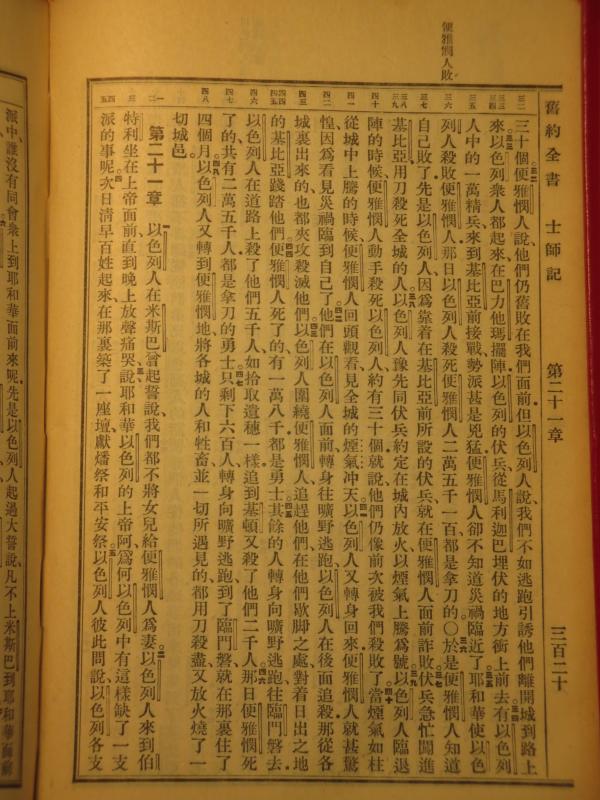 舊約全書 士師記 第二十一章 三百二十
便雅憫人敗
三二 三三 三四 三五 三六 三七 三八 三九 四十 四一 四二 四三 四四 四五 四六 四七 四八 一 二 三 四 五
三十個便雅憫人說他們仍舊敗在我們面前但以色列人說我們不如逃跑引誘他們離開城到路上
來以色列衆人都起來在巴力他瑪擺陣以色列的伏兵從馬利迦巴埋伏的地方衝上前去有以色列
人中的一萬精兵來到基比亞前接戰勢派甚是兇猛便雅憫人卻不知道災禍臨近了耶和華使以色
列人殺敗便雅憫人那日以色列人殺死便雅憫人二萬五千一百都是拿刀的〇於是便雅憫人知道
自己敗了先是以色列人因爲靠着在基比亞前所設的伏兵就在便雅憫人面前詐敗伏兵急忙闖進
基比亞用刀殺死全城的人以色列人豫先同伏兵約定在城內放火以煙氣上騰爲號以色列人臨退
陣的時候便雅憫人動手殺死以色列人約有三十個就說他們仍像前次被我們殺敗了當煙氣如柱
從城中上騰的時候便雅憫人回頭觀看見全城的煙氣冲天以色列人又轉身回來便雅憫人就甚驚
惶因爲看見災禍臨到自己了他們在以色列人面前轉身往曠野逃跑以色列人在後面追殺那從各
城裏出來的也都夾攻殺滅他們以色列人圍繞便雅憫人追趕他們在他們歇脚之處對着日出之地
的基比亞踐踏他們便雅憫人死了的有一萬八千都是勇士其餘的人轉身向曠野逃跑往臨門磐去
以色列人在道路上殺了他們五千人如拾取遺穗一樣追到基頓又殺了他們二千人那日便雅憫死
了的共有二萬五千人都是拿刀的勇士只剩下六百人轉身向曠野逃跑到了臨門磐就在那裏住了
四個月以色列人又轉到便雅憫地將各城的人和牲畜並一切所遇見的都用刀殺盡又放火燒了一
切城邑
第二十一章 以色列人在米斯巴曾起誓說我們都不將女兒給便雅憫人爲妻以色列人來到伯
特利坐在上帝面前直到晚上放聲痛哭說耶和華以色列的上帝阿爲何以色列中有這樣缺了一支
派的事呢次日清早百姓起來在那裏築了一座壇獻燔祭和平安祭以色列人彼此問說以色列各支
派中誰沒有同會衆上到耶和華面前來呢先是以色列人起過大誓說凡不上米斯巴到耶和華面前